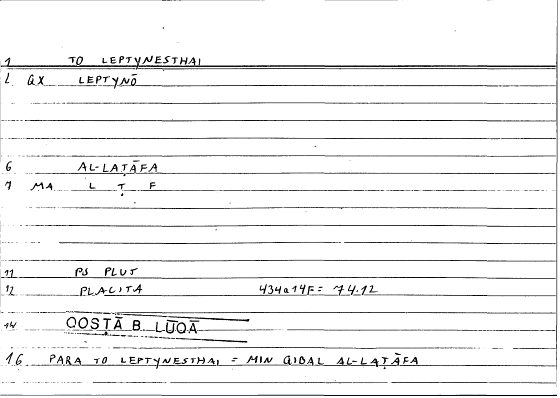 1 TO LEPTYNESTHAI
2 QX LEPTYNŌ
6 AL-LAṬĀFA
7 MA L Ṭ F
11 PS PLUT
12 PLACITA 434a14F = 74.12
14 QOSṬĀ B. LŪQĀ
16 PARA TO LEPTYNESTHAI = MIN QIBAL AL-LAṬĀFA